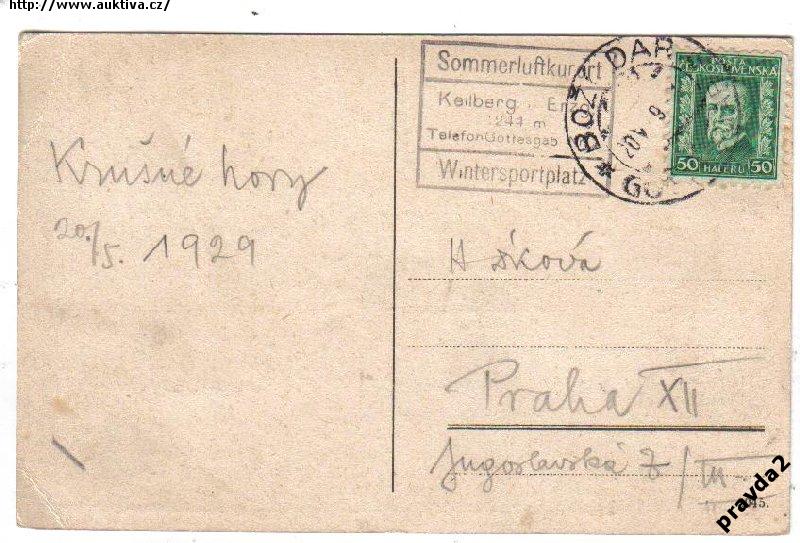 http://www.auktiva.cz/
Sommerluftkurort
Keilberg Erzg
1244 m
Telefon Gottesgab
Wintersportplatz
BOŽÍ DAR
POŠTA
ČESKOSLOVENSKÁ
50 HALÉŘŮ 50
Krušné hory
20/5. 1929
šková
Praha XII
Jugoslavská 7/III
pravda2